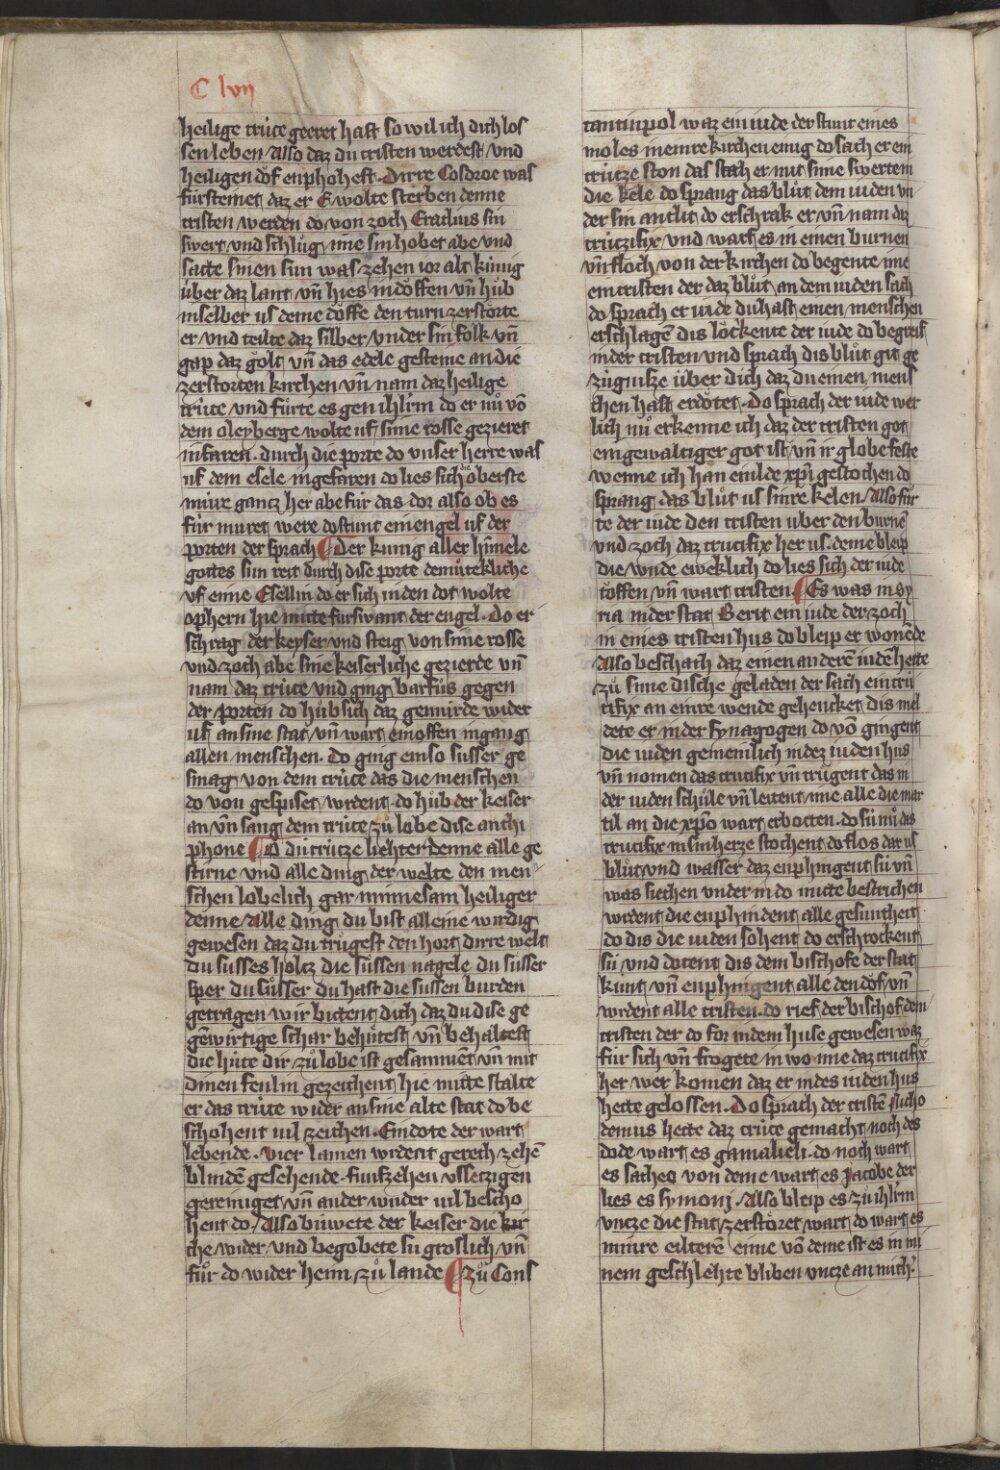 C lvii
heilige crúce geeret hast so wil ich dich los
sen leben Also daz du cristen werdest vnd
heiligen dof enphohest. Dirre Cosdroe was
fúrsteinet daz er E wolte sterben denne
cristen werden do von zoch Eraclius sin
swert vnd schlůg ime sin hobet abe vnd
satte sinen sun was zehen ior alt kúnig
úber daz lant vn̄ hies in döffen vn̄ hůb
in selber us deme döffe den turn zerstorte
er vnd teilte daz silber vnder sin folk vn̄
gap daz golt vn̄ das edele gesteine an die
zerstorten kirchen vn̄ nam daz heilige
crúce vnd fůrte es gen ihlr̄m do er nů vō
dem oleyberge wolte uf sime rosse gezieret
in faren. durch die porte do vnser herre was
uf dem esele in gefaren do lies sich die oberste
mure gantz her abe fúr das dor also ob es
fúr muret were do stunt ein engel uf der
porten der sprach Der kunig aller him̄ele
gottes sun reit durch dise porte demůtekliche
vf eime Esellin do er sich in den dot wolte
ophern hie mitte fúrswant der engel. Do er
schrag der keyser vnd steig von sime rosse
vnd zoch abe sine keiserliche gezierde vn̄
nam daz crúce vnd ging barfůs gegen
der porten do hůb sich daz gemúrde wider
uf an sine stat vn̄ wart ein offen ingang
allen menschen. Do ging ein so sússer ge
smag von dem crúce das die menschen
do von gespiset wrdent. do hůb der keiser
an vn̄ sang dem crúce zů lobe dise anthi
phone O du crútze liehter denne alle ge
stirne vnd alle ding der welte den men
schen lobelich gar minnesam heiliger
denne Alle ding du bist alleine wirdig
gewesen daz du trůgest den hort dirre welt
du susses holtz die sússen nagele du susser
sper du sůsser du hast die sussen burden
getragen wir bittent dich daz du dise ge
genwirtige schar behůtest vn̄ behaltest
die húte dir zů lobe ist gesamnēt vn̄ mit
dinen fenlin gezeichent hie mitte stalte
er das crúce wider an sine alte stat do be
schohent uil zeichen. Ein dote der wart
lebende. vier lamen wrdent gerech zehē
blindē gesehende. funfzehen vssetzigen
gereiniget vn̄ ander wnder uil bescho
hent do. Also búwete der keiser die kir
che wider vnd begobete sú groslich vn̄
fůr do wider heim zů lande zů Cons
tantinpol waz ein iude der stunt eines
moles in einre kirchen einig do sach er ein
crútze ston das stach er mit sime swertem
die kele do sprang das blůt dem iuden vn
der sin antlit do erschrak er vn̄ nam daz
crútzifix vnd warf es in einen burnen
vn̄ floch von der kirchen do begente ime
ein cristen der daz blůt an dem iuden sach
do sprach er iude du hast einen menschen
erschlagē dis löckente der iude do begreif
in der cristen und sprach dis blůt git ge
zúgnisze úber dich daz du einen mens
schen hast erdötet. Do sprach der iude wer
lich nů erkenne ich daz der cristen got
ein gewaltiger got ist vn̄ ir globe feste
wenne ich han ein bilde xp̄i gestochen do
sprang das blůt us sinre kelen Also fůr
te der iude den cristen uber den burnē
vnd zoch daz crucifix her us. deme bleip
die wnde eweklich do lies sich der iude
töffen vn̄ wart cristen Es was in sy
ria in der stat Berit ein iude der zoch
in eines cristen hus do bleip er wonēde
Also beschach daz einen anderē iudē hette
zů sime dische geladen der sach ein cru
cifix an einre wende gehencket dis mel
dete er in der synagogen do vō gingent
die iuden gemeinlich in dez iuden hus
vn̄ nomen das crucifix vn̄ trůgent das in
der iuden schůle vn̄ leitent ime alle die mar
til an die xp̄o wart erbotten. do sú nů das
crucifix in sin herze stochent do flos dar us
blůt vnd wasser daz enphingent sú vn̄
was siechen vnder in do mitte bestrichen
wrdent die enphindent alle gesuntheit
do dis die iuden sohent do erschrockent
sú vnd dotent dis dem bischofe der stat
kunt vn̄ enphingent alle den dof vn̄
wrdent alle cristen. do rief der bischof dem
cristen der do for in dem huse gewesen waz
fúr sich vn̄ frogete in wo ime daz crucifix
her wer komen daz er in des iuden hus
hette gelossen. Do sprach der cristē nicho
demus hette daz crúce gemacht noch des
dode wart es gamalieli. do noch wart
es sacheo von deme wart es Jacobe der
lies es symoni. Also bleip es zů ihlr̄m
vncze die stat zerstöret wart do wart es
minre eilterē eime vō deme ist es in mi
nem geschlehte bliben vncze an mich.